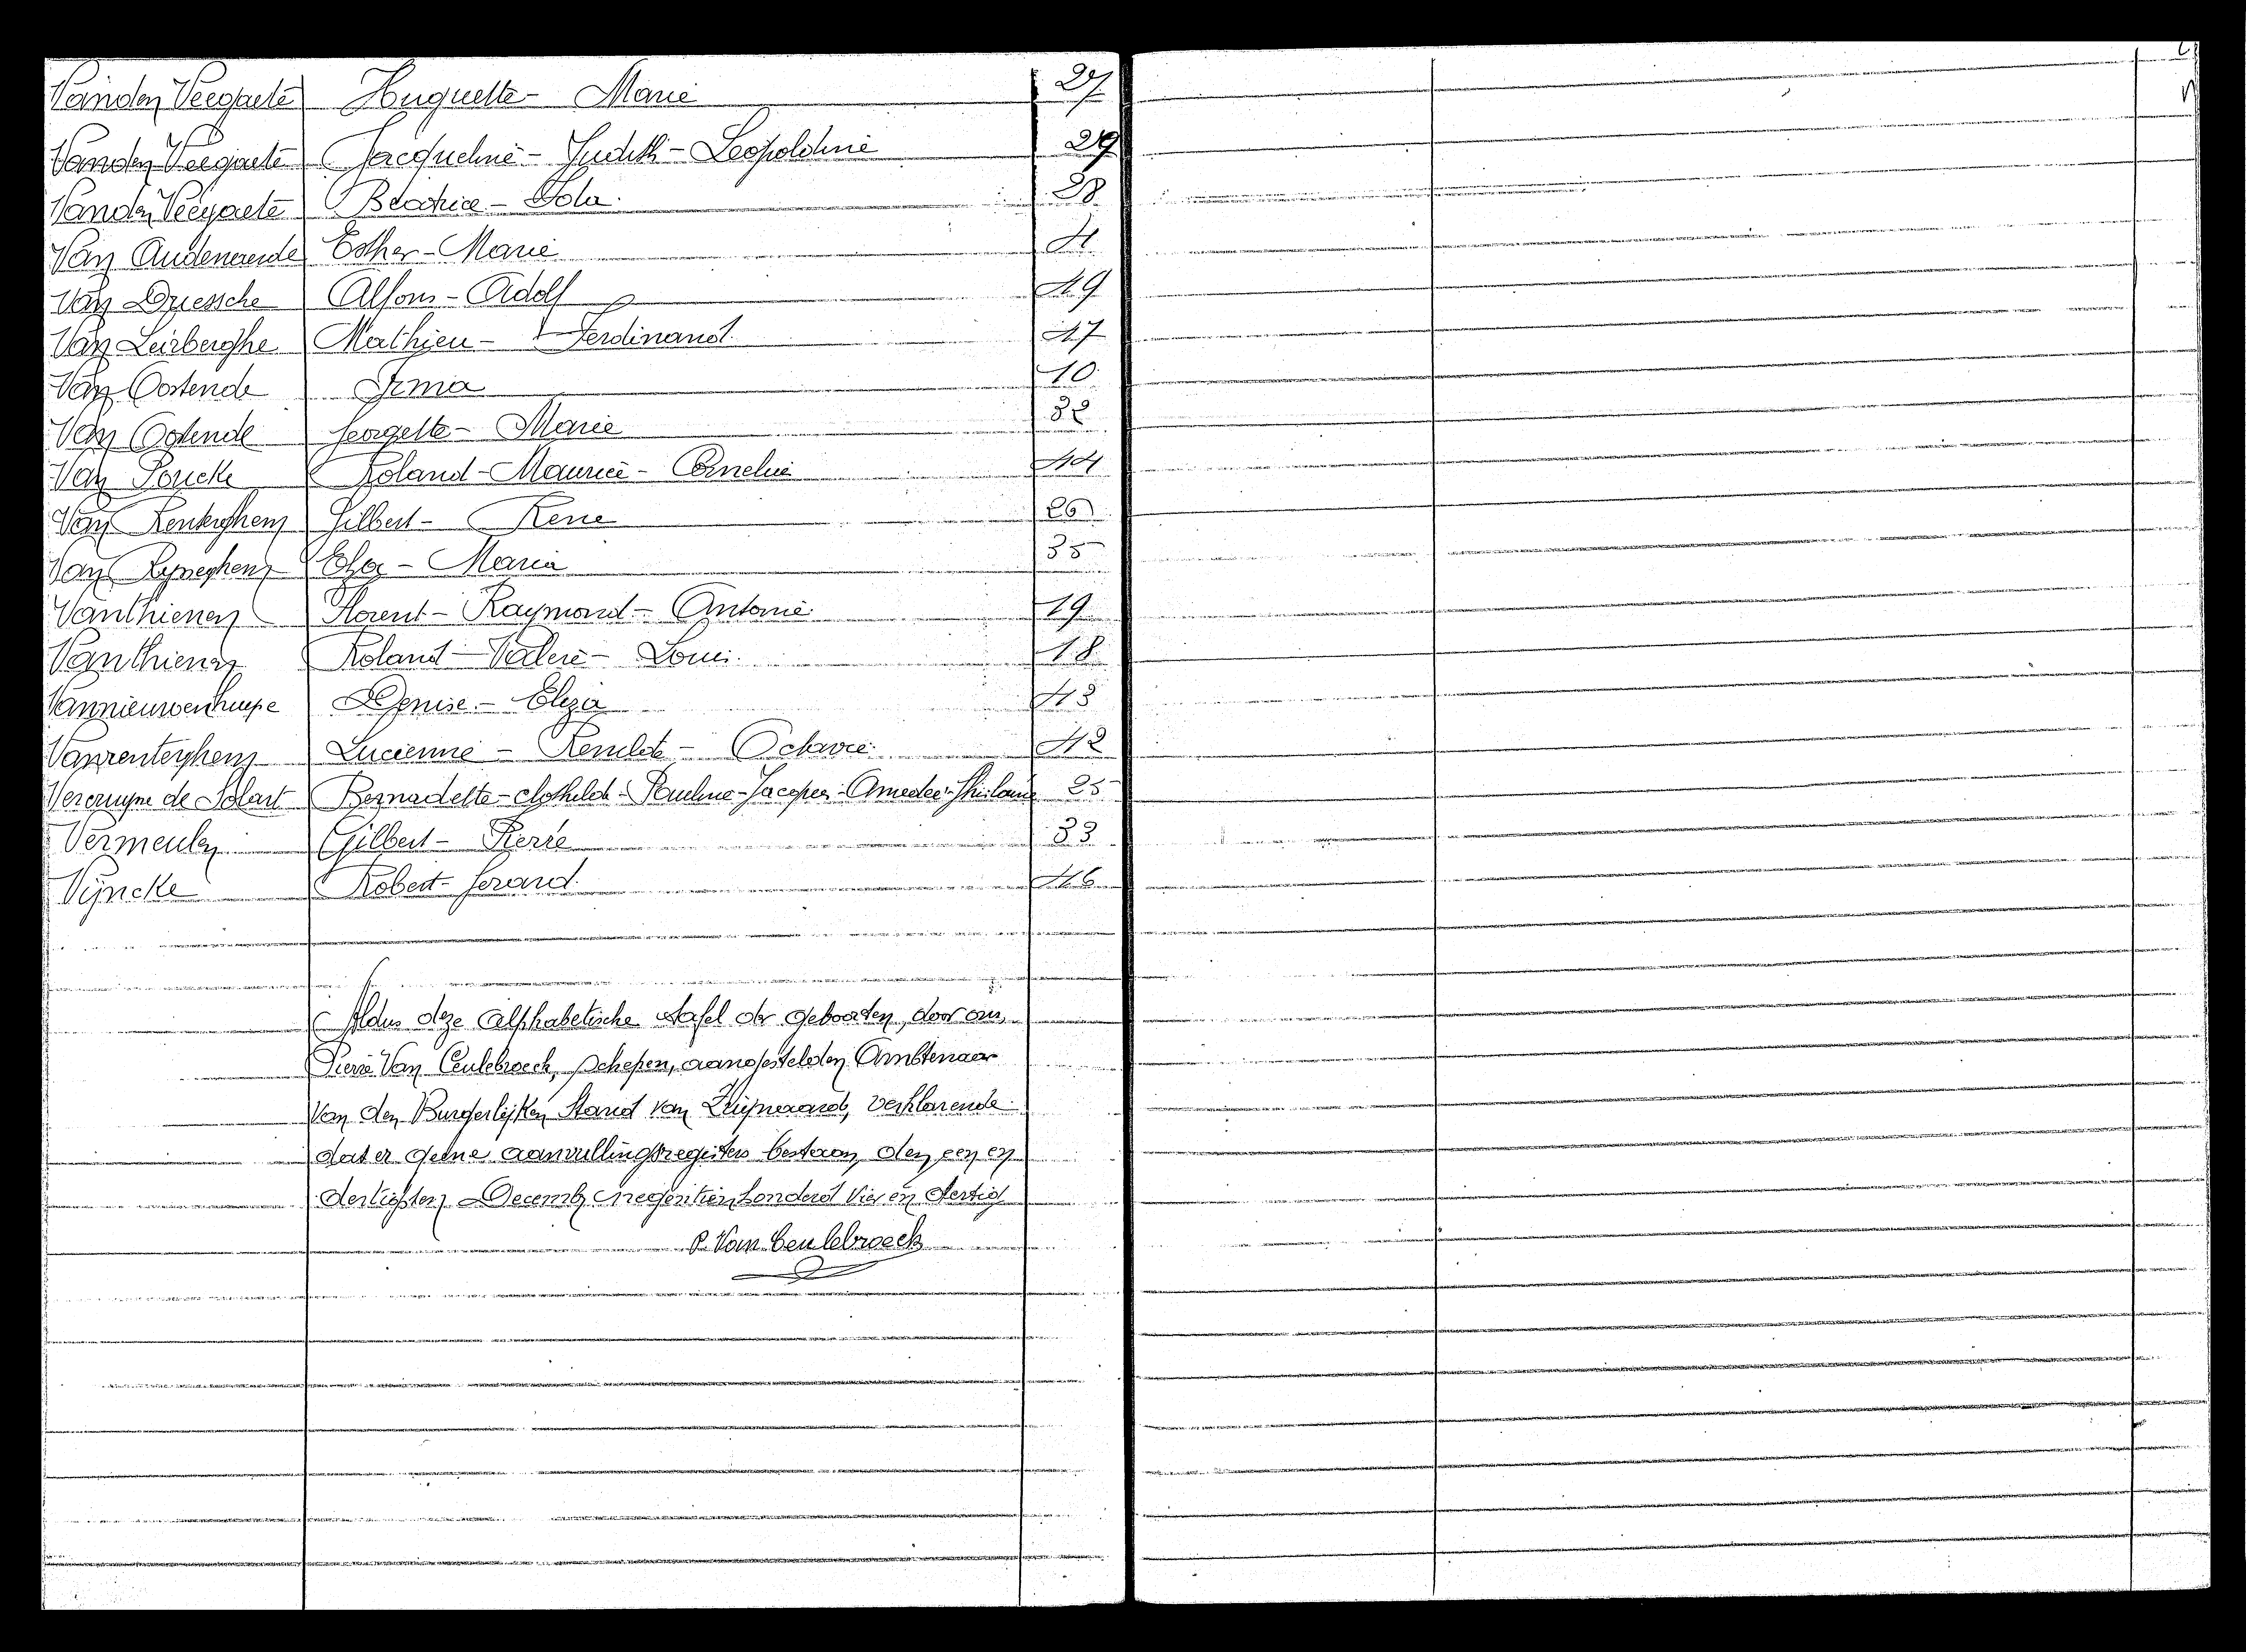 Vanden Veegaete Huguette - Marie 27
Vanden Veegaete Jacqueline - Judith - Leopoldine 29
Vanden Veegaete Beatrice - Lola 28
Van Audenaerde Esther - Marie 4
Van Driessche Alfons - Adolf 49
Van Leirberghe Mathieu - Ferdinand 47
Van Oostende Irma 10
Van Oostende Georgette - Marie 32
Van Poucke Roland - Maurice - Cornelie 44
Van Renterghem Gilbert - Rene 20
Van Rysseghem Elza - Maria 35
Vanthienen Florent - Raymond - Antonie 19
Vanthienen Roland - Valere - Louis 18
Vannieuwenhuyse Denise - Eliza 43
Vanrenterghem Lucienne - Renilde - Octavie 42
Vercruysse de Solart Bernadette - Clothilde - Pauline - Jacques - Amedee - Ghislaine 25
Vermeulen Gilbert - Pierre 33
Vyncke Robert - Gerard 46
Aldus deze alphabetische tafel der geboorten, door ons,
Pierre Van Ceulebroeck, schepen, aangestelden Ambtenaar
van den Burgerlijken Stand van Zwijnaarde, verklarende
dat er geene aanvullingsregisters bestaan, den een en
dertigsten December negentienhonderd vier en dertig
P. Van Ceulebroeck